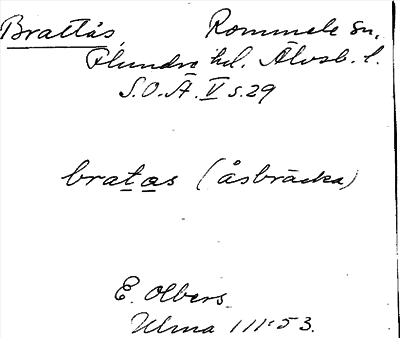 Brattås, Rommele sn.
Flundre hd. Älvsb. l.
S.O.Ä. V s.29
bratas (åsbräcka)
E. Olbers
Ulma 111:53.